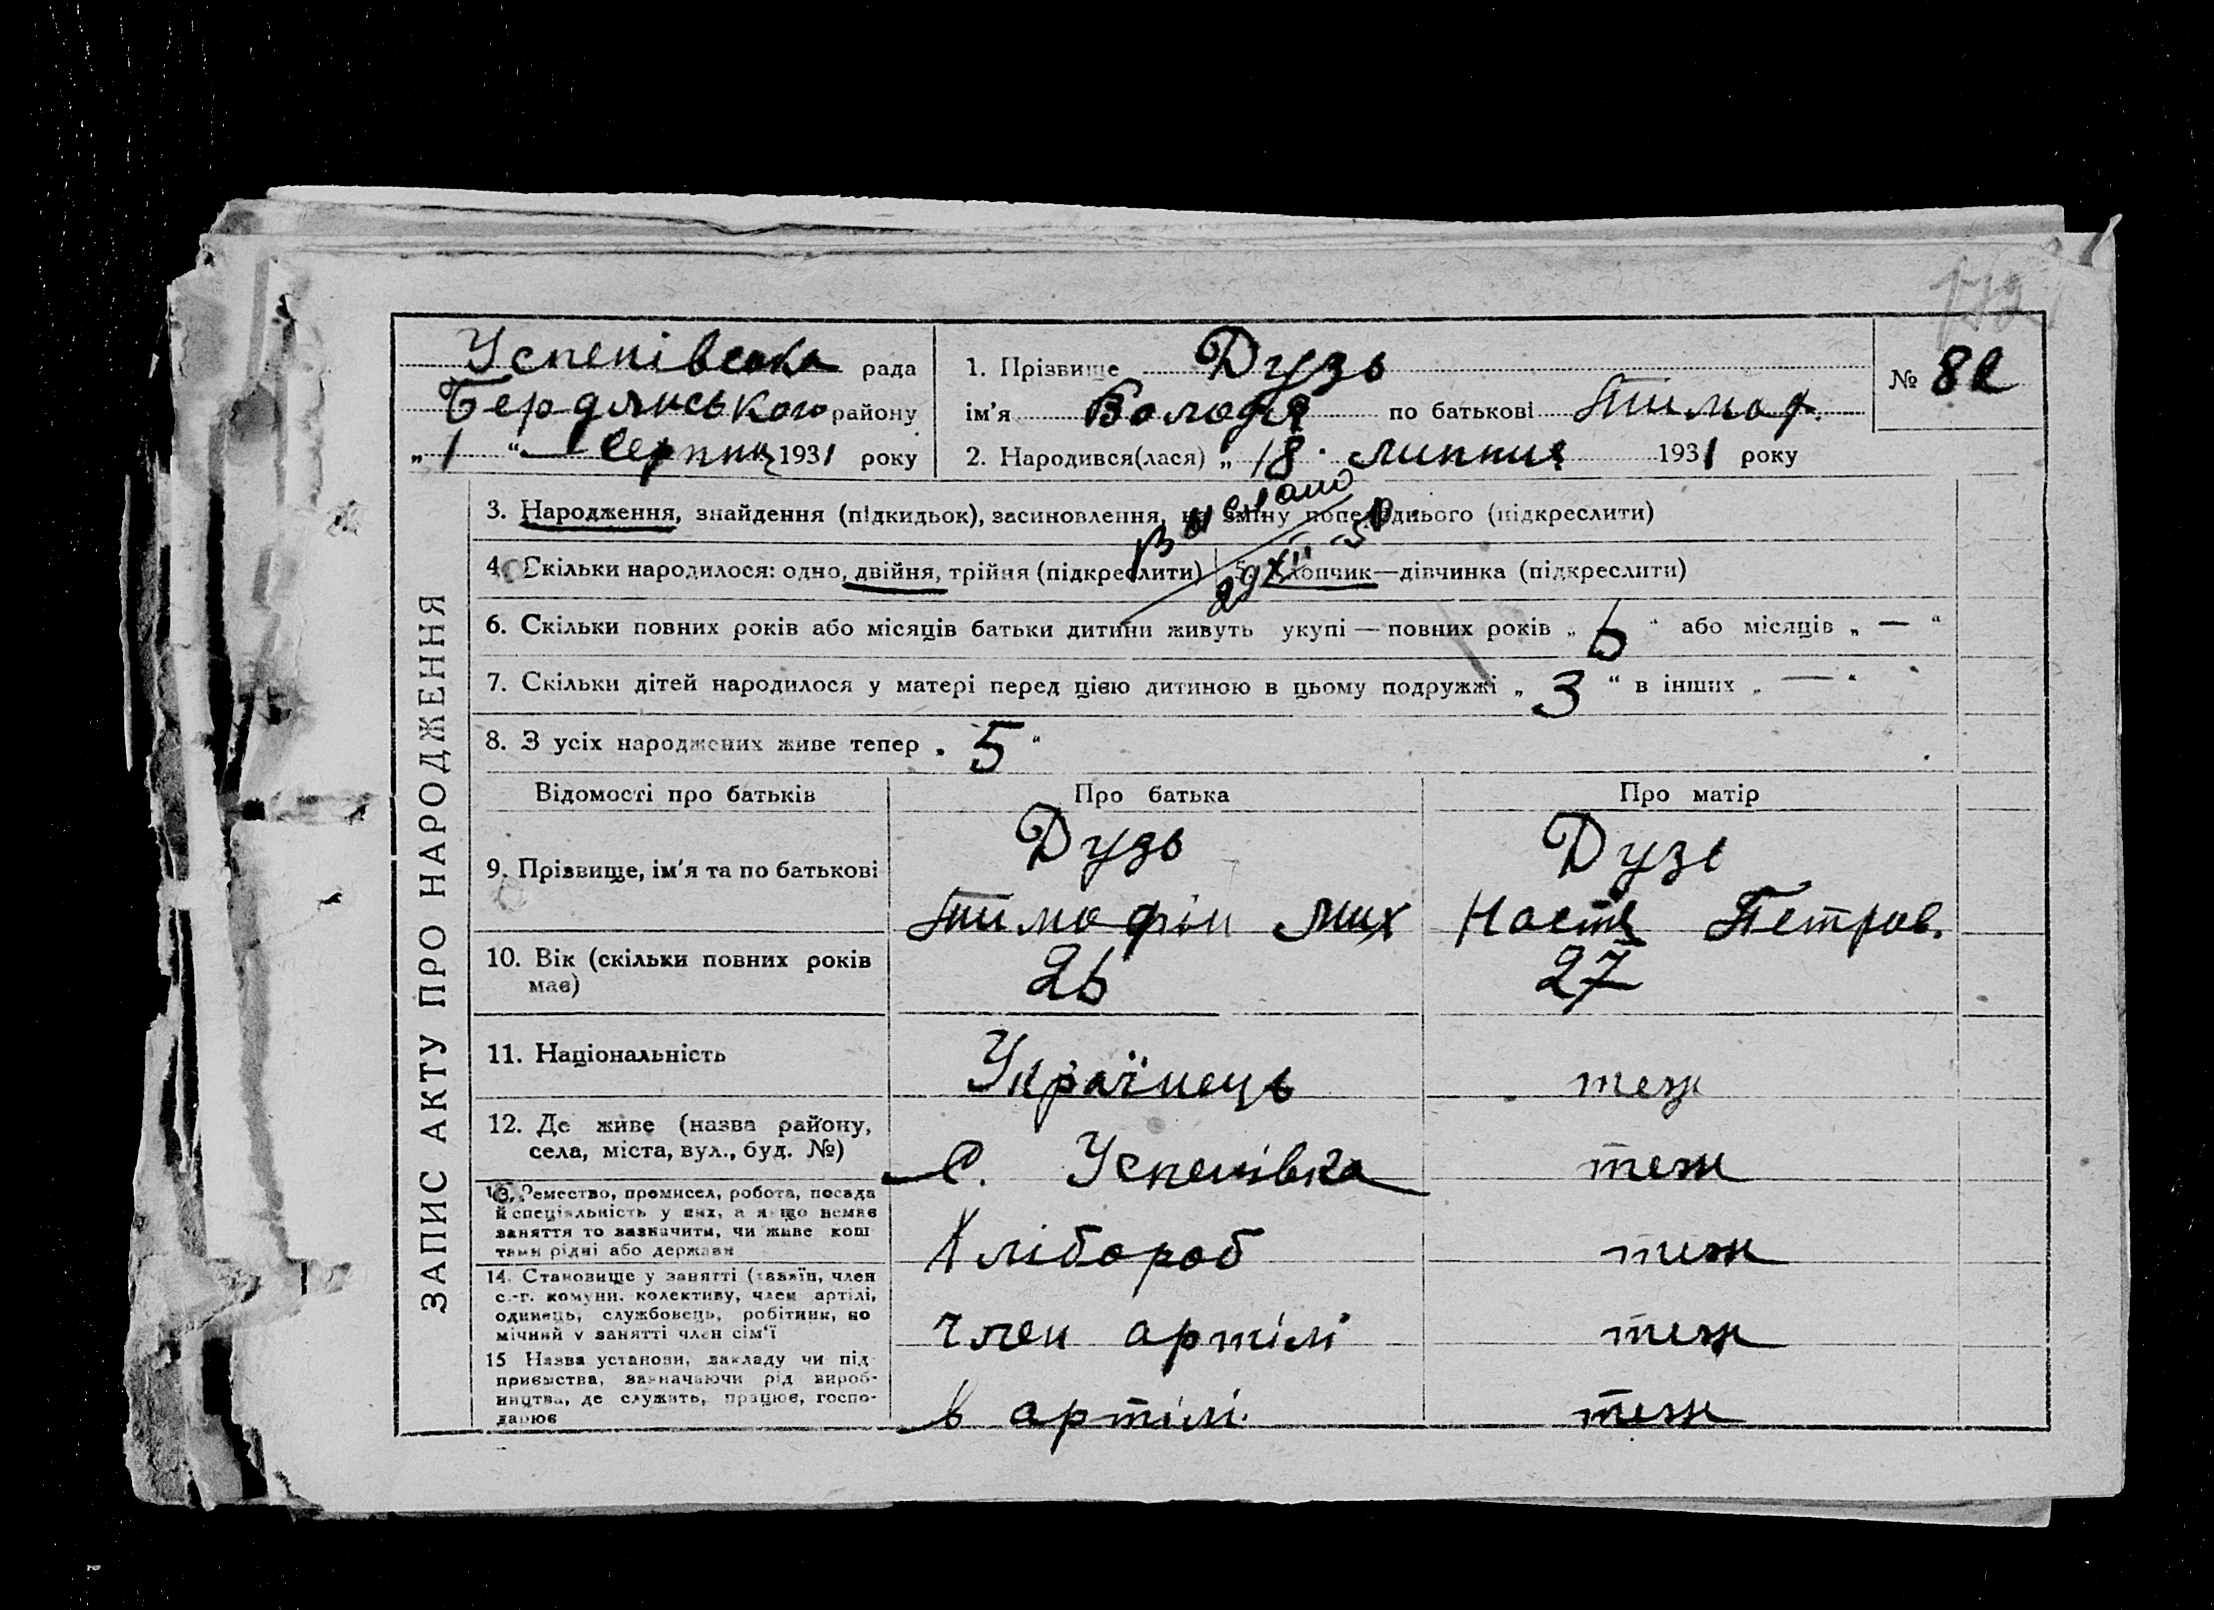 Успенівська рада
Бердянського району
„ 1 “ Серпня 1931 року
1. Прізвище Дузь
ім'я Володя по батькові Тимоф.
2. Народився(лася) „ 18. липня 1931 року
№
ЗАПИС АКТУ ПРО НАРОДЖЕННЯ
3. Народження, знайдення (підкидьок), засиновлення, на зміну попереднього (підкреслити)
4. Скільки народилося: одно, двійня, трійня (підкреслити) 5. Хлопчик—дівчинка (підкреслити)
6. Скільки повних років або місяців батьки дитини живуть укупі — повних років „ 6 “ або місяців „ — “
7. Скільки дітей народилося у матері перед цією дитиною в цьому подружжі „ 3 “ в інших „ — “
8. З усіх народжених живе тепер „ 5 “
Відомості про батьків Про батька Про матір
9. Прізвище, ім'я та по батькові
Дузь
Тимофій Мих
Дузь
Настя Петров.
10. Вік (скільки повних років має)
26
27
11. Національність
Українець
теж
12. Де живе (назва району,
села, міста, вул., буд. №)
С. Успенівка
теж
13. Ремество, промисел, робота, посада
й спеціяльність у них, а якщо немає
заняття то зазначити, чи живе кош
тами рідні або держави
Хлібороб
теж
14. Становище у занятті (хазяїн, член
с.-г. комуни, колективу, член артілі,
одинець, службовець, робітник, по
мічний у занятті член сім'ї
член артілі
теж
15 Назва установи, закладу чи під
приємства, зазначаючи рід вироб-
ництва, де служить, працює, госпо-
дарює
в артілі.
теж